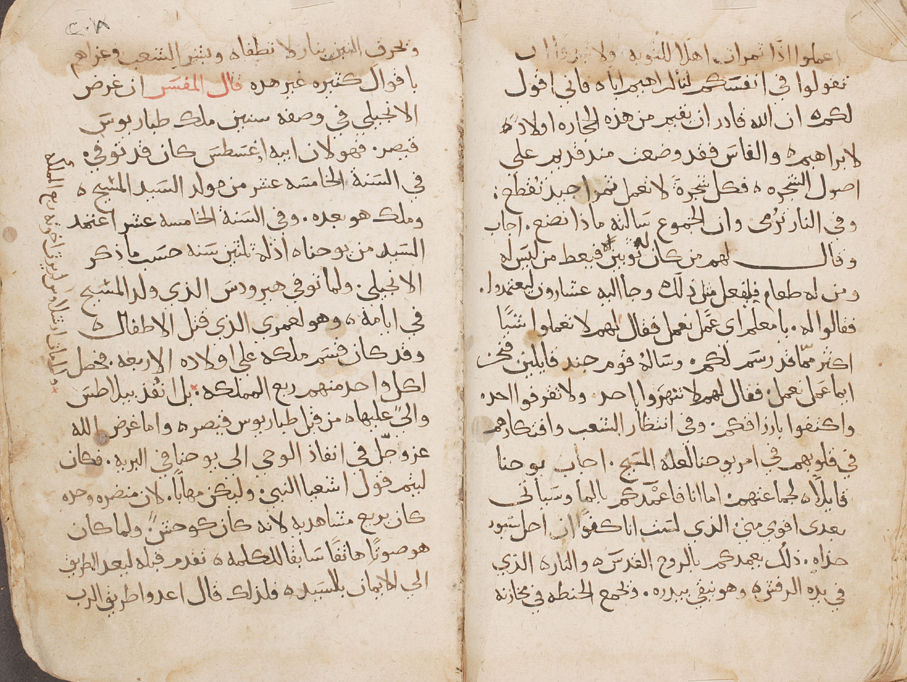 اعملوا اذًا ثمرات اهلًا للتوبه ولا تبدوا ان
تقولوا في انفسكم لنا ابراهيم اباه فاني اقول
لكم ان الله قادر ان يقيم من هذه الحجاره اولاد
لابراهيم والفاس فقد وضعت منذ قديم على
اصول الشجره فكل شجرة لا تعمل ثمرا جيد تقطع
وفي النار ترمى وان الجموع سالته ماذا نصنع اجاب
وقال لهم من كان له ثوبين فيعط من ليس له
ومن له طعام فليفعل مثل ذلك وجا اليه عشارون ليعتمدوا
فقالوا له يا معلم اي عمل نعمل فقال لهم لا تعملوا شيًا
اكثر ممّا قد رسم لكم وساله قوم جند قايلين نحن
ايما عمل نعمل فقال لهم لا تنهروا احد ولا تقرفوا احد
واكتفوا بارزاقكم وفي انتظار الشعب وافتكارهم
في قلوبهم في امر يوحنا لعله المسيح اجاب يوحنا
قايلًا لجماعتهم اما انا فاعمدكم بالما وسياتي
بعدي اقوي مني الذي لست انا كفوا ان احل سيور
حذاه ذلك يعمدكم بالروح القدس والنار الذي
في يده الرفش وهو ينقي بيدره ويجمع الحنطه في مخازنه
٣٠٨
ويحرق التبن بنار لا تطفاه ويبشر الشعب وعزاهم
باقوال كثيره غير هده قال المفسر ان غرض
الانجيلي في وصفه سنين ملك طباريوس
قيصر فهو لان ابيه اغسطس كان قد توفي
في السنة الخامسه عشر من مولد السيد المسيح
وملك هو بعده وفي السنة الخامسه عشر اعتمد
السيد من يوحنا اذ له ثلثين سنه حسب ما ذكر
الانجيلي ولما توفي هيرودس الذي ولد المسيح
في ايامه وهو لعمري الذي قتل الاطفال
وقد كان قسم ملكه على اولاده الاربعه فحصل
لكل واحد منهم ربع المملكه بل انفذ بيلاطس
والي عليها من قبل طباريوس قيصر واما غرض الله
عز وجل في انفاذ الوحي الى يوحنا في البريه فكان
ليتم قول اشعيا النبي وليكن مهابا لان منصره وحده
كان يريع مشاهديه لانه كان كوحش ولما كان
هو صوتًا هاتفًا سابقًا للكلمه تقدم قبله ليعد الطريق
الى الايمان بالسيد ولذلك قال اعدوا طريق الرب